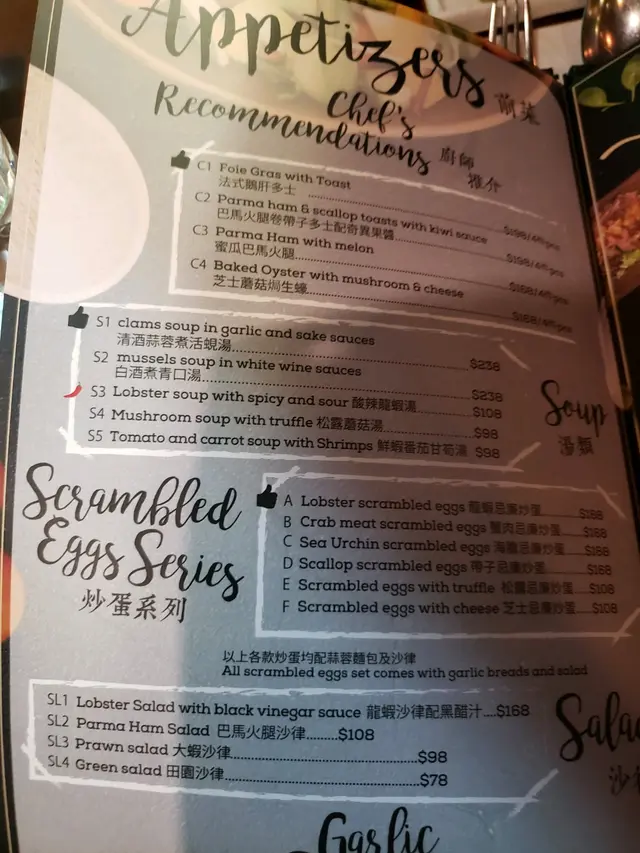 Appetizers 前菜
Chef's
Recommendations 廚師
推介
C1 Foie Gras with Toast
法式鵝肝多士 $198/4件pcs
C2 Parma ham & scallop toasts with kiwi sauce
巴馬火腿卷帶子多士配奇異果醬 $198/4件pcs
C3 Parma Ham with melon
蜜瓜巴馬火腿 $168/4件pcs
C4 Baked Oyster with mushroom & cheese
芝士蘑菇焗生蠔 $168/4件pcs
S1 clams soup in garlic and sake sauces
清酒蒜蓉煮活蜆湯 $238
S2 mussels soup in white wine sauces
白酒煮青口湯 $238
S3 Lobster soup with spicy and sour 酸辣龍蝦湯 $108
S4 Mushroom soup with truffle 松露蘑菇湯 $98
S5 Tomato and carrot soup with Shrimps 鮮蝦番茄甘荀湯 $98
Soup
湯類
Scrambled
Eggs Series
炒蛋系列
A Lobster scrambled eggs 龍蝦忌廉炒蛋 $188
B Crab meat scrambled eggs 蟹肉忌廉炒蛋 $188
C Sea Urchin scrambled eggs 海膽忌廉炒蛋 $188
D Scallop scrambled eggs 帶子忌廉炒蛋 $168
E Scrambled eggs with truffle 松露忌廉炒蛋 $108
F Scrambled eggs with cheese 芝士忌廉炒蛋 $108
以上各款炒蛋均配蒜蓉麵包及沙律
All scrambled eggs set comes with garlic breads and salad
SL1 Lobster Salad with black vinegar sauce 龍蝦沙律配黑醋汁 $168
SL2 Parma Ham Salad 巴馬火腿沙律 $108
SL3 Prawn salad 大蝦沙律 $98
SL4 Green salad 田園沙律 $78
Sala
沙
Garlic